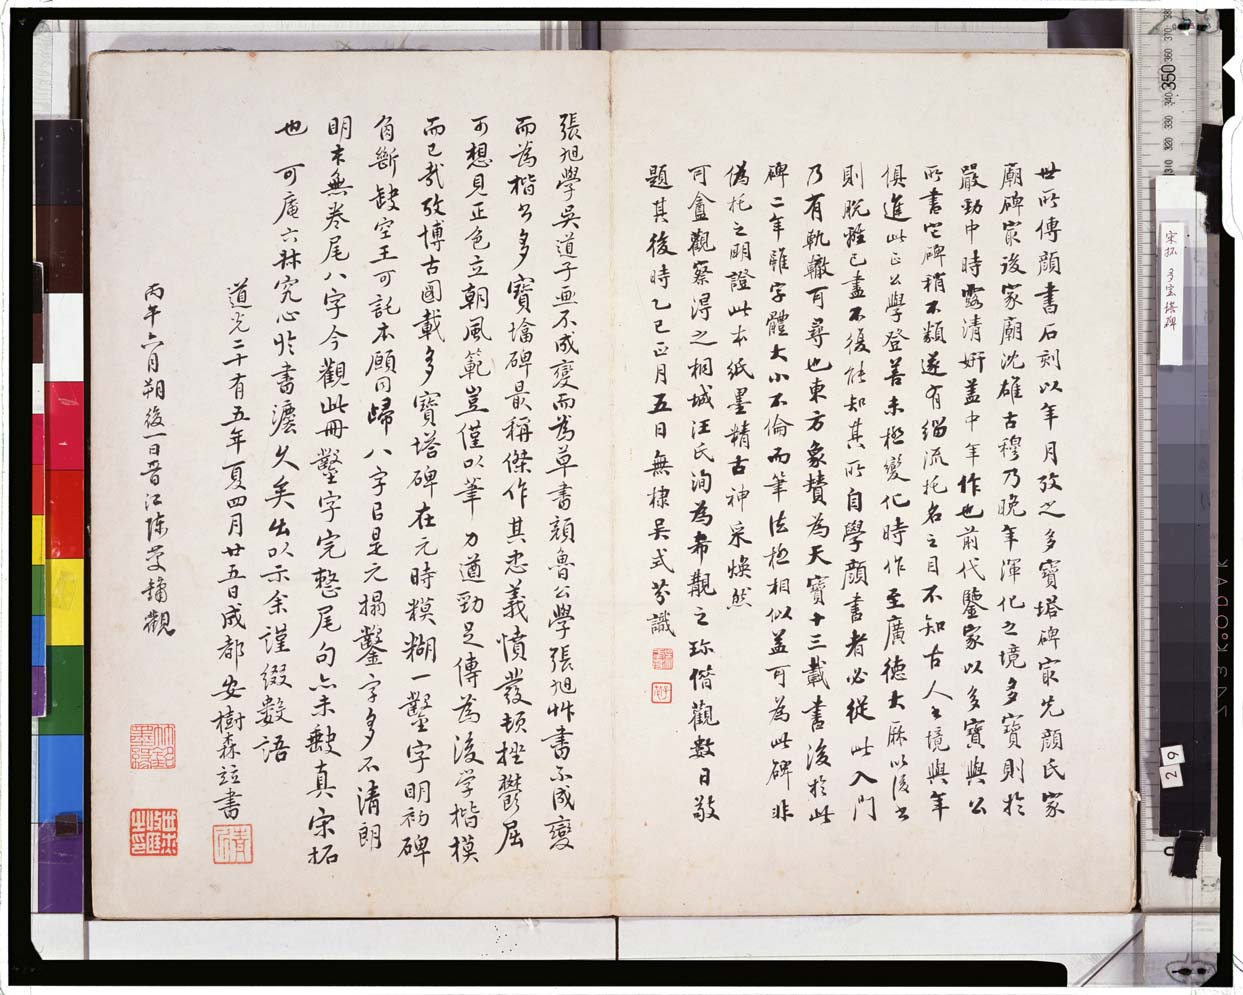 世所傳顔書石刻以年月攷之多寶塔碑㝡先顔氏家
廟碑㝡後家廟沈雄古穆乃晚年渾化之境多寶則於
嚴勁中時露清妍蓋中年作也前代鑒家以多寶與公
所書它碑稍不類遂有緇流托名之目不知古人之境與年
俱進此正公學登善未極變化時作至廣德大厤以後書
則脫離已盡不復能知其所自學顔書者必從此入門
乃有軌轍可尋也東方象贊為天寶十三載書後於此
碑二年雖字體大小不倫而筆法極相似蓋可為此碑非
偽托之明證此本紙墨精古神采煥然
可盦觀察得之桐城汪氏洵為希覯之珎偕觀數日敬
題其後時乙巳正月五日無棣吳式芬識
張旭學吳道子畫不成變而為草書顔魯公學張旭艸書不成變
而為楷公多寶塔碑最稱傑作其忠義憤發頓挫鬱屈
可想見正色立朝風範豈僅以筆力遒勁足傳為後学楷模
而已哉攷博古圖載多寶塔碑在元時糢糊一鑿字明初碑
角斷缺空王可託本願同歸八字自是元搨鑿字多不清朗
明末無卷尾八字今觀此冊鑿字完整尾句亦未斁真宋拓
也 可庵六兄究心於書灋久矣出以示余謹綴數語
道光二十有五年夏四月廿五日成都安樹森竝書
丙午六月朔後一日晉江陳慶鏞觀
宋拓 多宝塔碑
350
29
KODVK